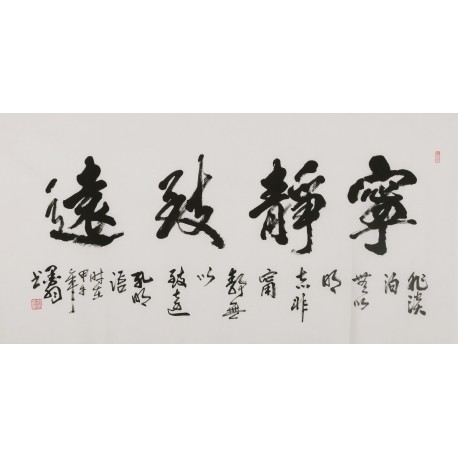 寧靜致遠
非淡
泊
無以
明
志非
甯
靜無
以
致遠
孔明
語
时在
甲午
年
书